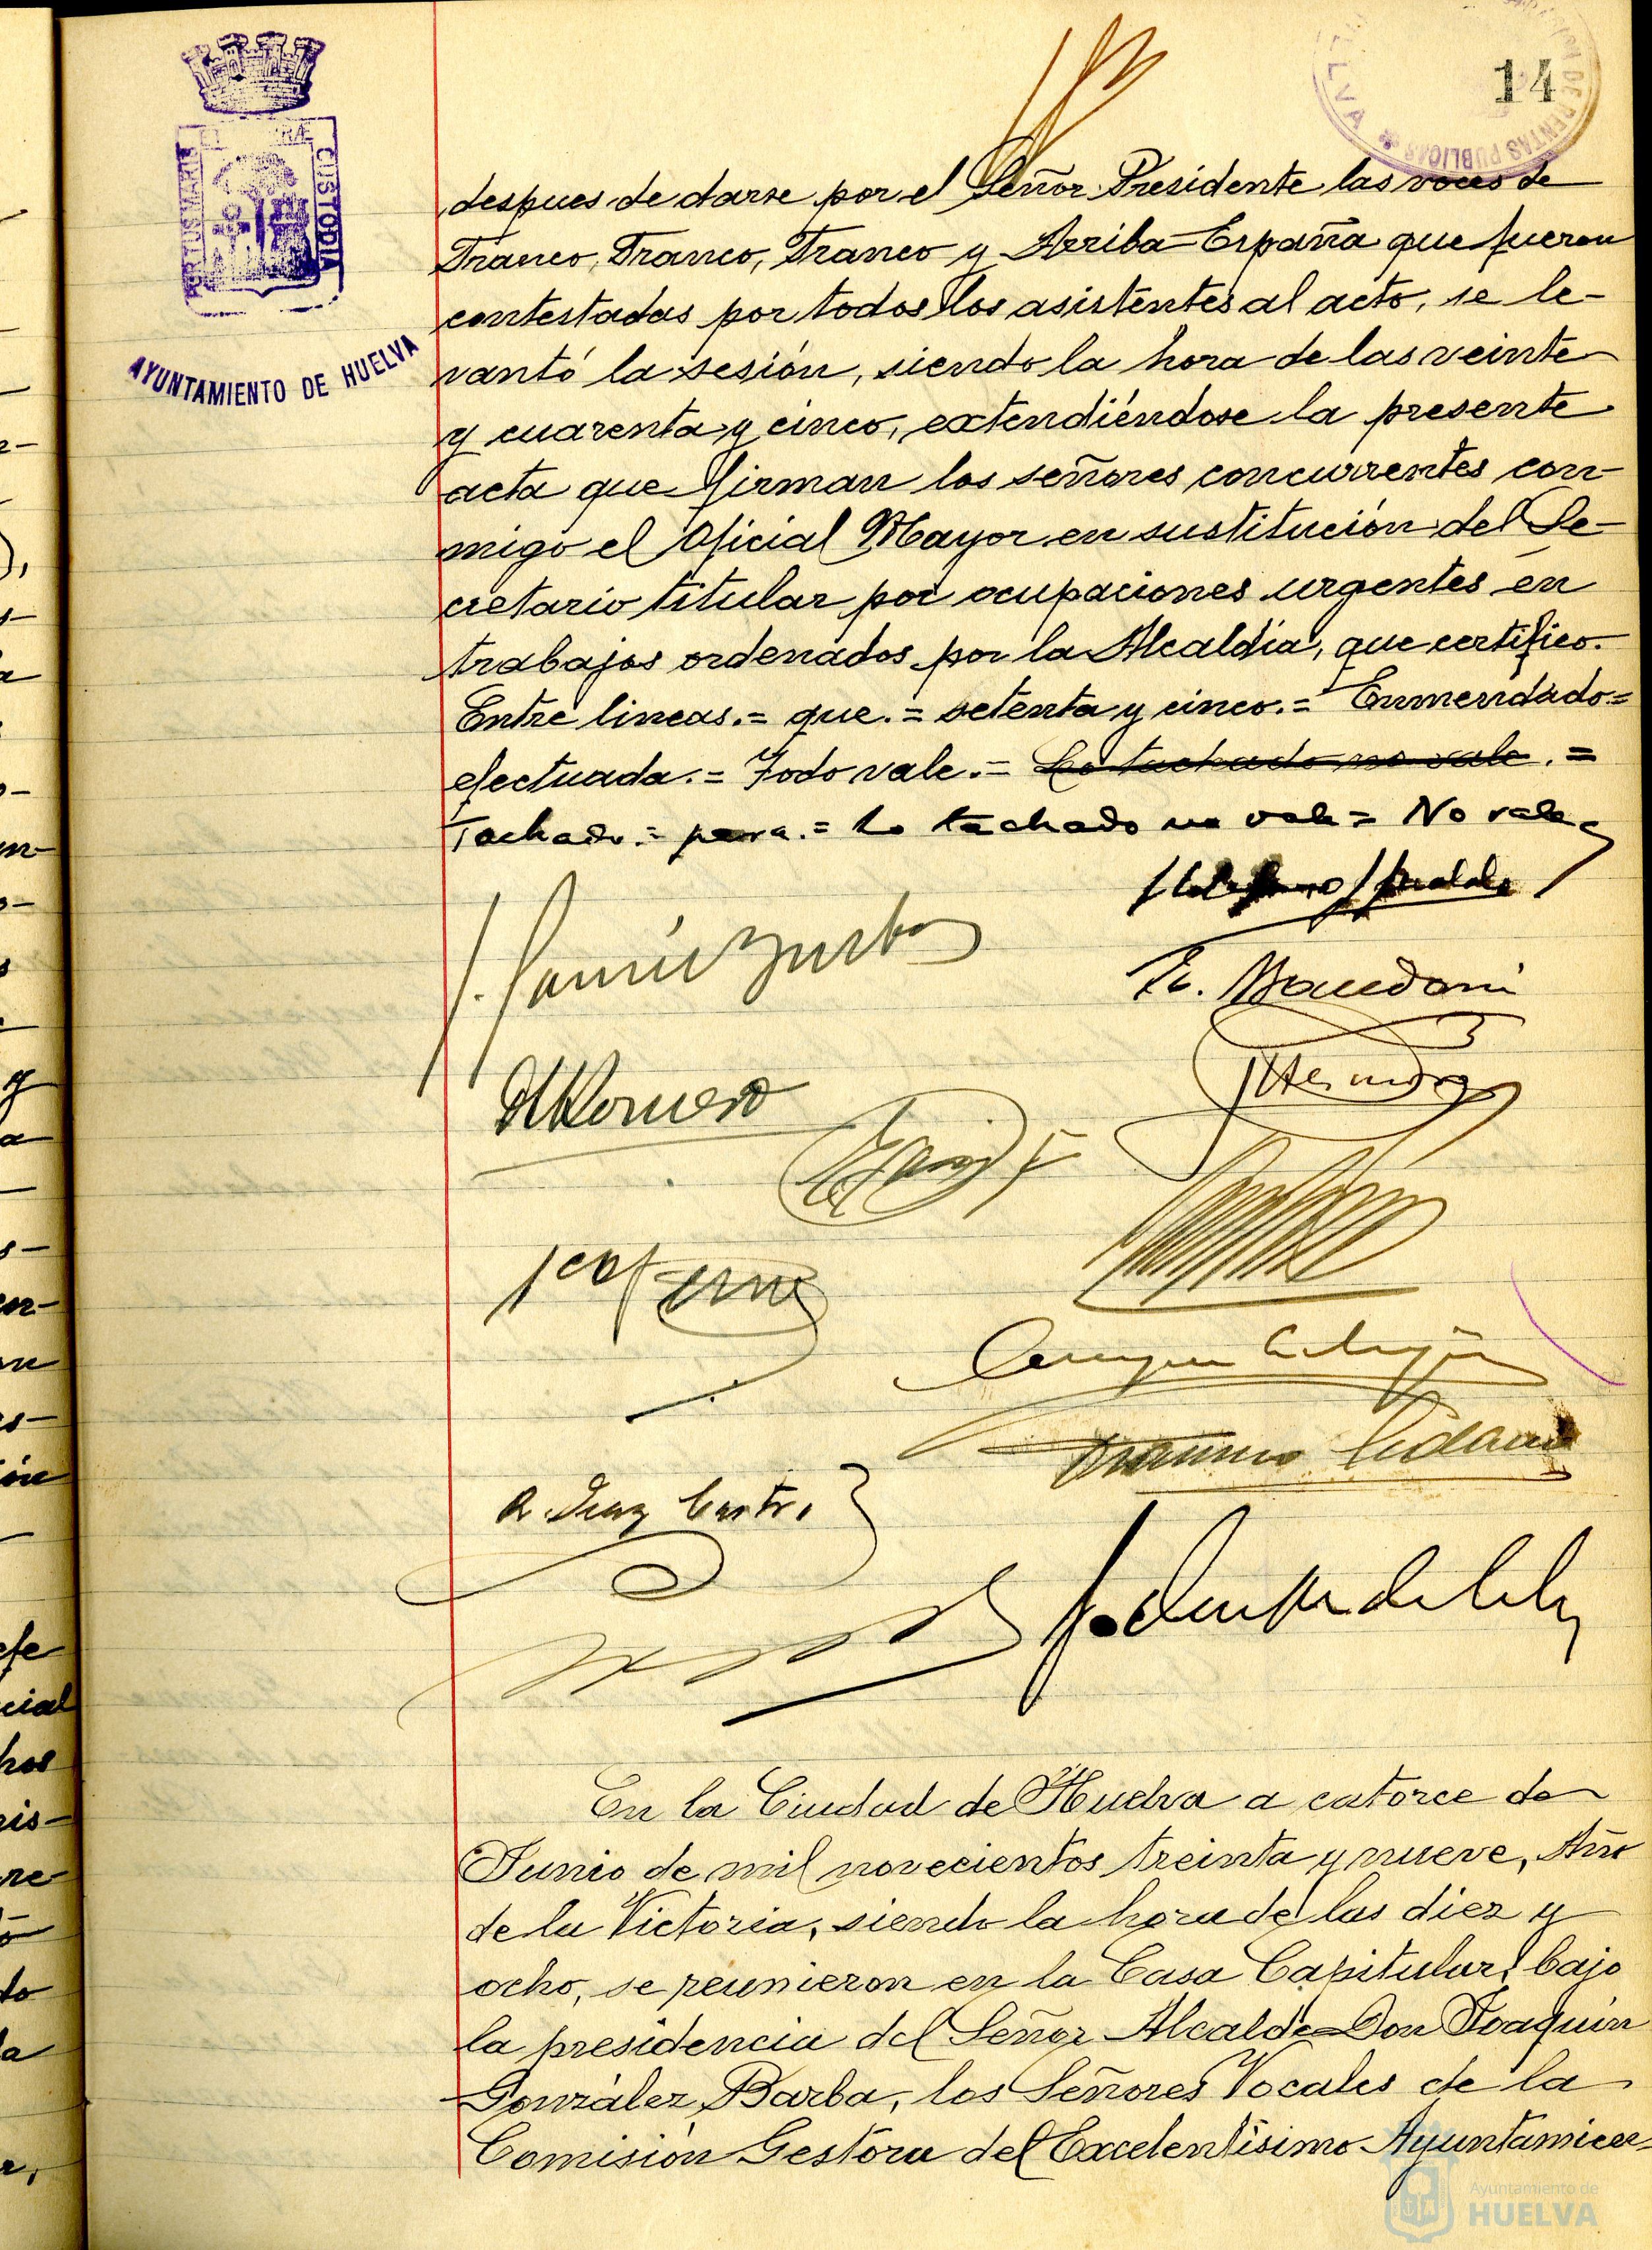 14
PORTUS MARIS
CUSTODIA
AYUNTAMIENTO DE HUELVA
despues de darse por el Señor Presidente las voces de
Franco, Franco, Franco y Arriba España que fueron
contestadas por todos los asistentes al acto, se le-
vantó la sesión, siendo la hora de las veinte
y cuarenta y cinco, extendiéndose la presente
acta que firman los señores concurrentes con-
migo el Oficial Mayor en sustitución del Se-
cretario titular por ocupaciones urgentes en
trabajos ordenados por la Alcaldía, que certifico.
Entre lineas.= que.= setenta y cinco.= Enmendado=
efectuada.= Todo vale.= Lo tachado no vale.=
Tachado.= para.= Lo tachado no vale= No vale
A. Romero
R. Diaz Castro
En la Ciudad de Huelva a catorce de
Junio de mil novecientos treinta y nueve, Año
de la Victoria, siendo la hora de las diez y
ocho, se reunieron en la Casa Capitular, bajo
la presidencia del Señor Alcalde Don Joaquín
González Barba, los Señores Vocales de la
Comisión Gestora del Excelentísimo Ayuntamien-
Ayuntamiento de
HUELVA